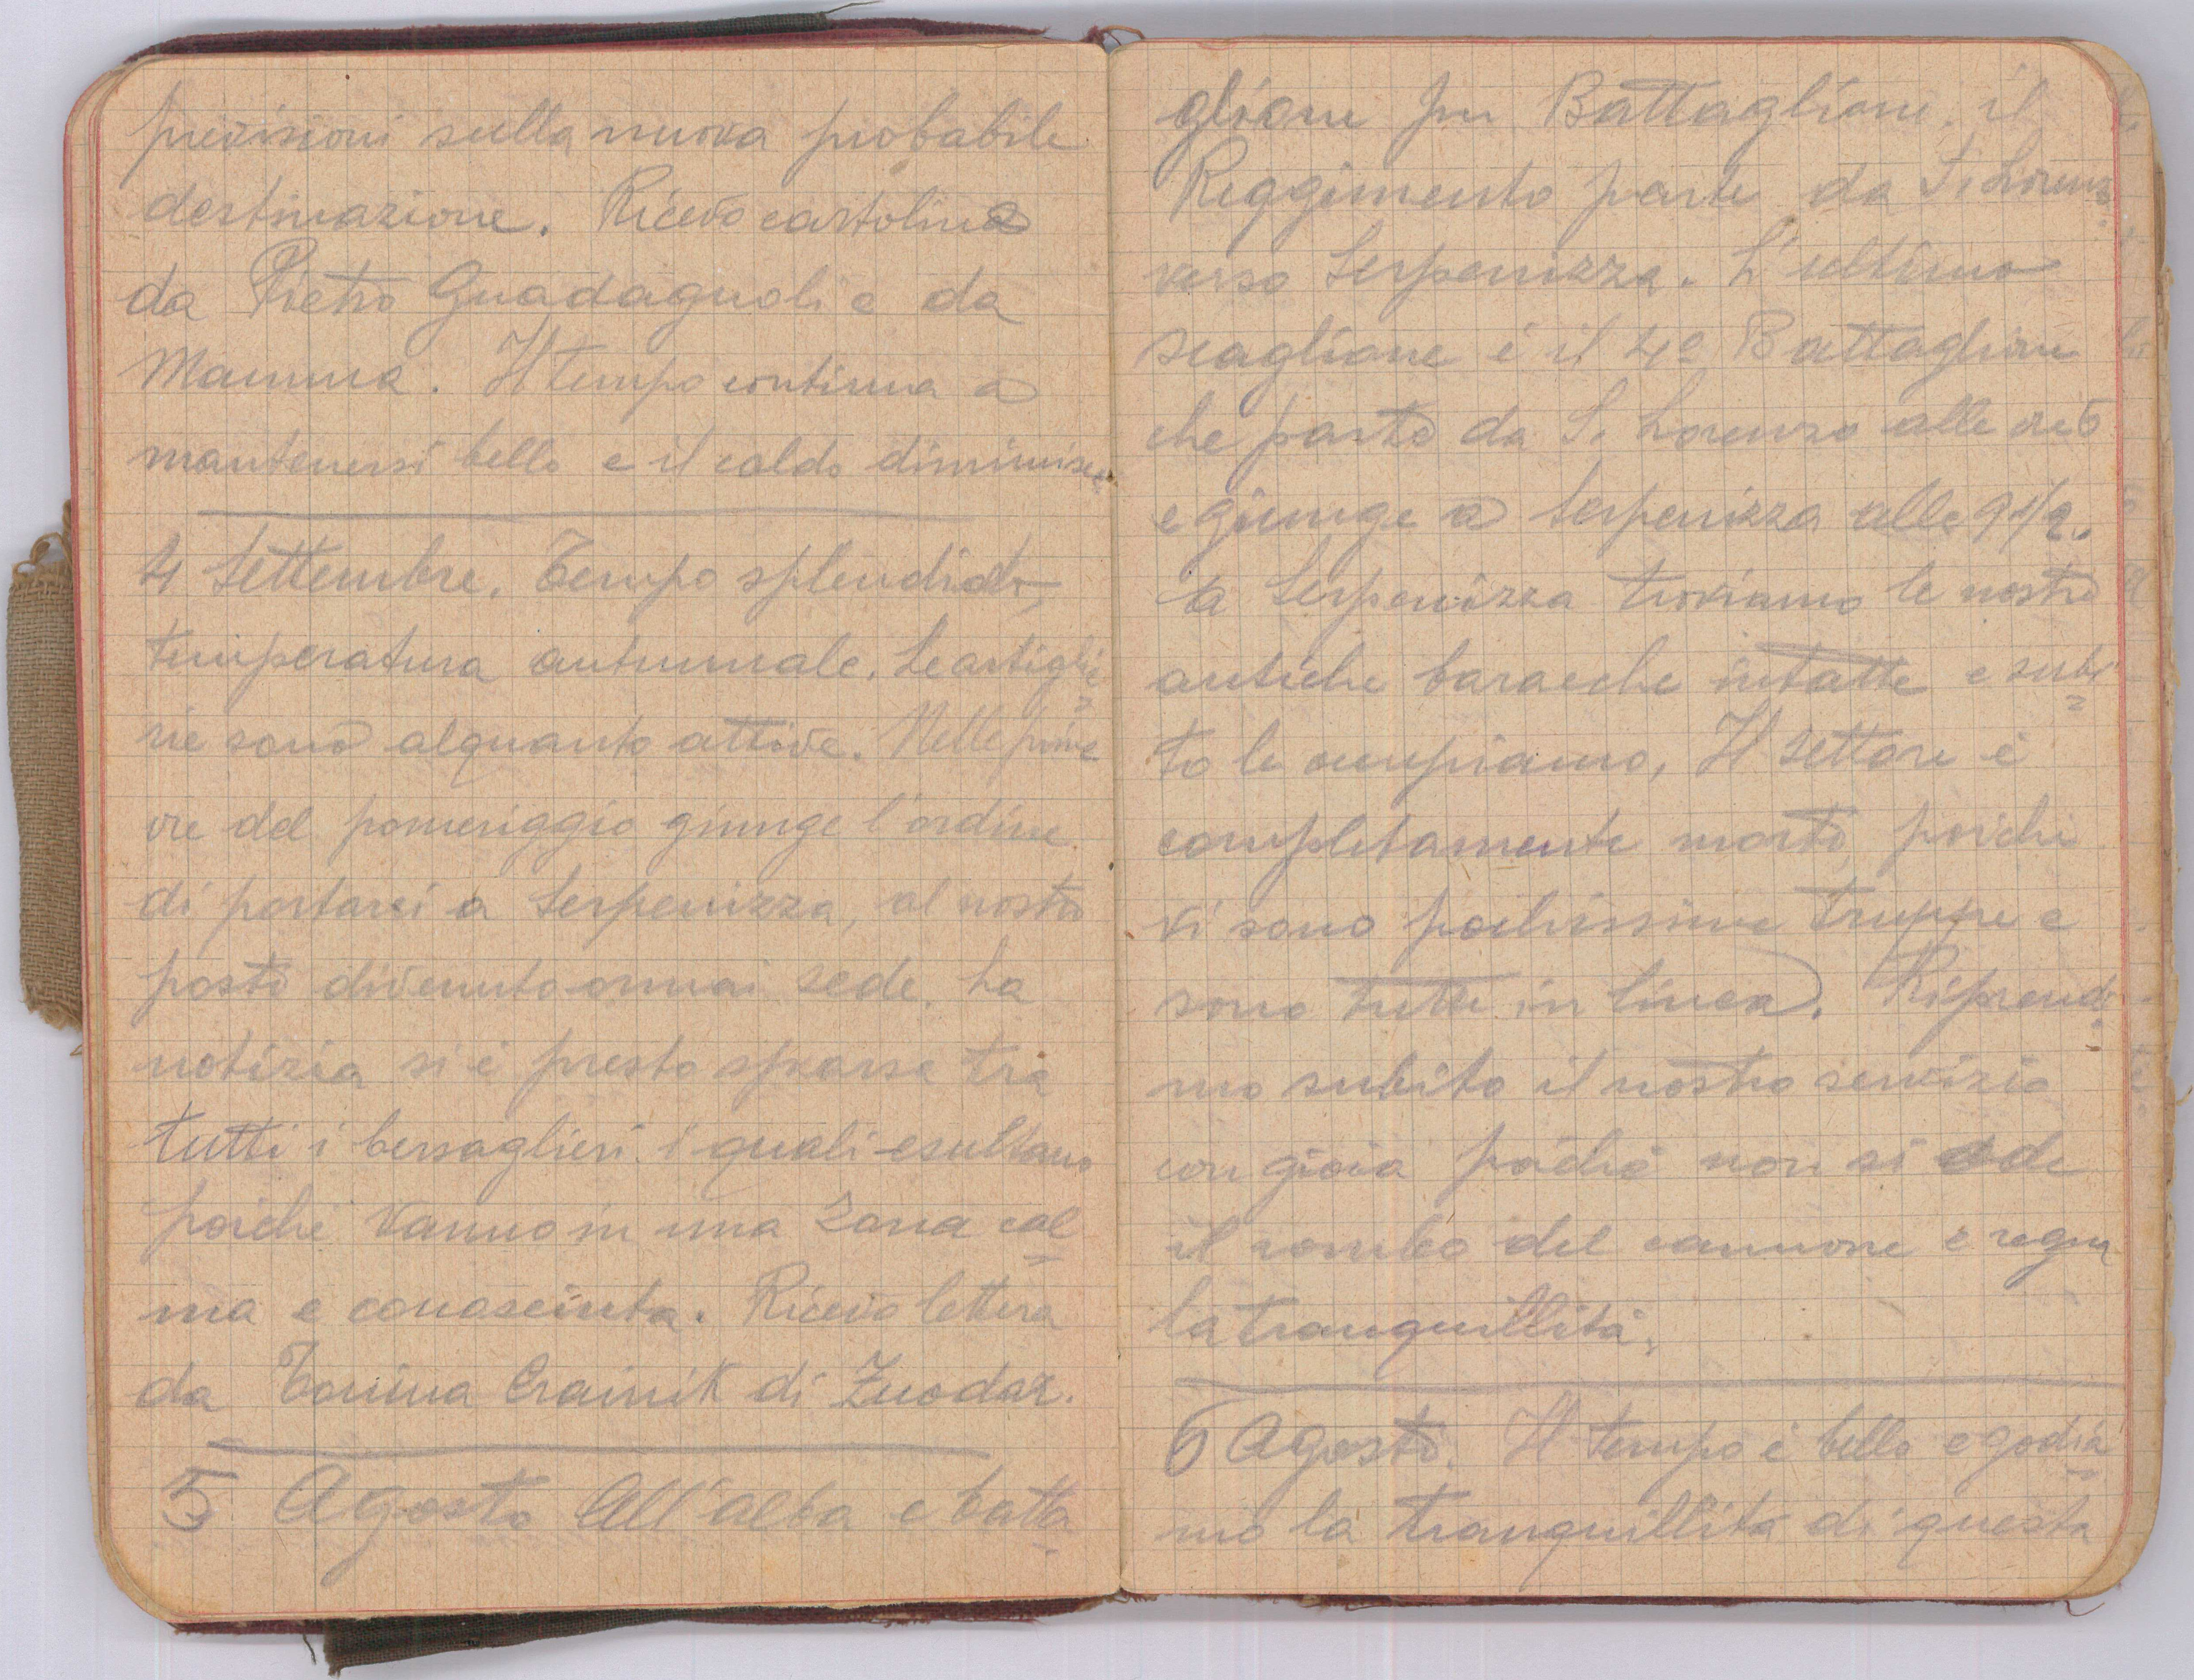 previsioni sulla nuova probabile
destinazione. Ricevo cartolina
da Pietro Guadagnoli e da
Mamma. Il tempo continua a
mantenersi bello e il caldo diminuisce
4 Settembre. Tempo splendido,
temperatura autunnale. Le artiglie=
rie sono alquanto attive. Nelle prime
ore del pomeriggio giunge l'ordine
di portarci a Serpenizza, al nostro
posto divenuto ormai sede. La
notizia si è presto sparsa tra
tutti i bersaglieri i quali esultano
poichè vanno in una zona cal
ma e conosciuta. Ricevo lettera
da Tonina Crainik di
5 Agosto All'alba e batta
glione per Battaglione il
Reggimento parte da S. Lorenzo
verso Serpenizza. L'ultimo
scaglione è il 4º Battaglione
che parte da S. Lorenzo alle ore 5
e giunge a Serpenizza alle 9 1/2.
A Serpenizza troviamo le nostre
antiche baracche intatte e subi=
to le occupiamo, Il settore è
completamente morto, poichè
vi sono pochissime truppe e
sono tutte in linea. Riprendia
mo subito il nostro servizio
con gioia poichè non si ode
il rombo del cannone e regna
la tranquillità.
6 Agosto. Il tempo è bello e godia
mo la tranquillità di questa